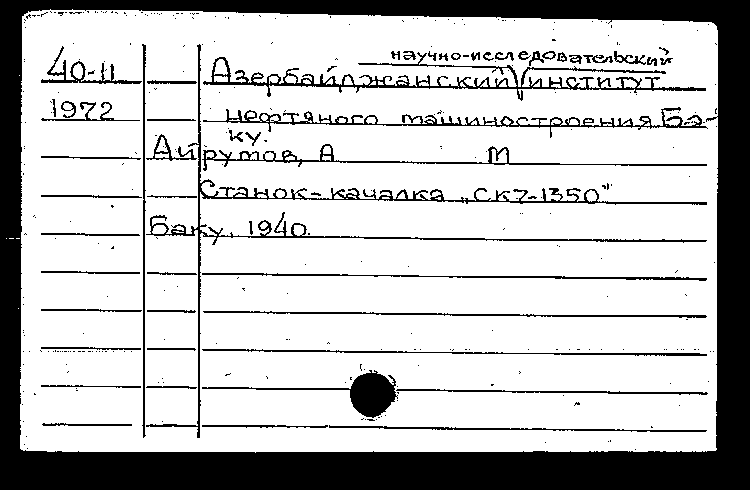 научно-исследовательский
40-11 Азербайджанский институт
1972 нефтяного машиностроения Ба-
ку.
Айрумов, А М
Станок-качалка „СК7-1350"
Баку, 1940.